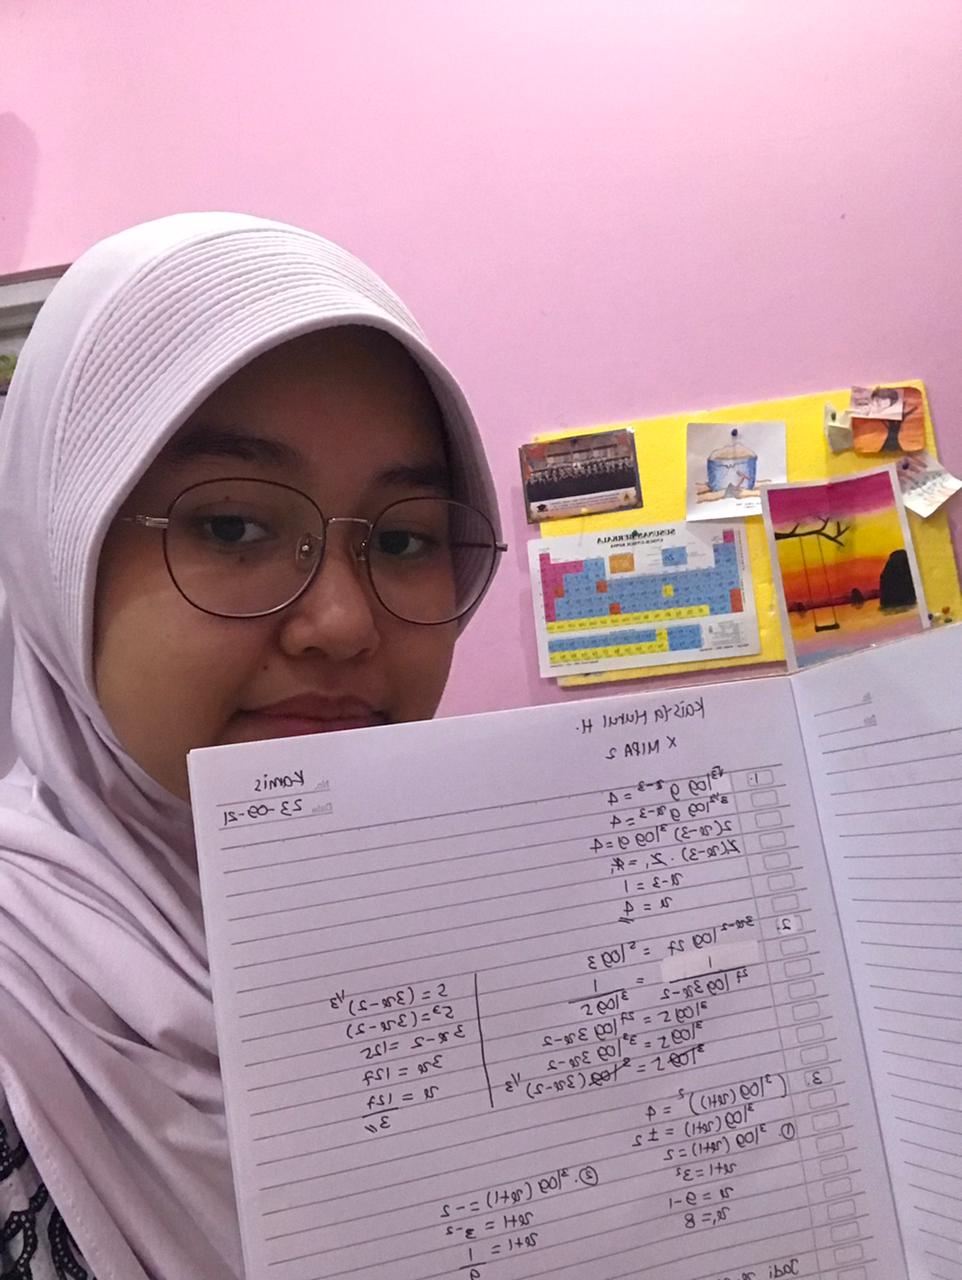 Kaisya Nurul H.
X MIPA 2
No. Kamis
Date 23-09-21
SUSUNAN BERKALA
1. √³log 9ˣ⁻³ = 4
3^½ log 9ˣ⁻³ = 4
2(x-3) ³log 9 = 4
2(x-3) . 2 = 4
x-3 = 1
x = 4
2. ³ˣ⁻²log 27 = ⁵log 3
1 / ²⁷log 3x-2 = 1 / ³log 5
³log 5 = ²⁷log 3x-2
³log 5 = 3³ log 3x-2
³log 5 = ³log (3x-2)^⅓
5 = (3x-2)^⅓
5³ = (3x-2)
3x-2 = 125
3x = 127
x = 127 / 3
3 (³log (x+1))² = 4
³log (x+1) = ± 2
① ³log (x+1) = 2
x+1 = 3²
x = 9-1
x₁ = 8
②. ³log (x+1) = -2
x+1 = 3⁻²
x+1 = 1 / 9
Jadi